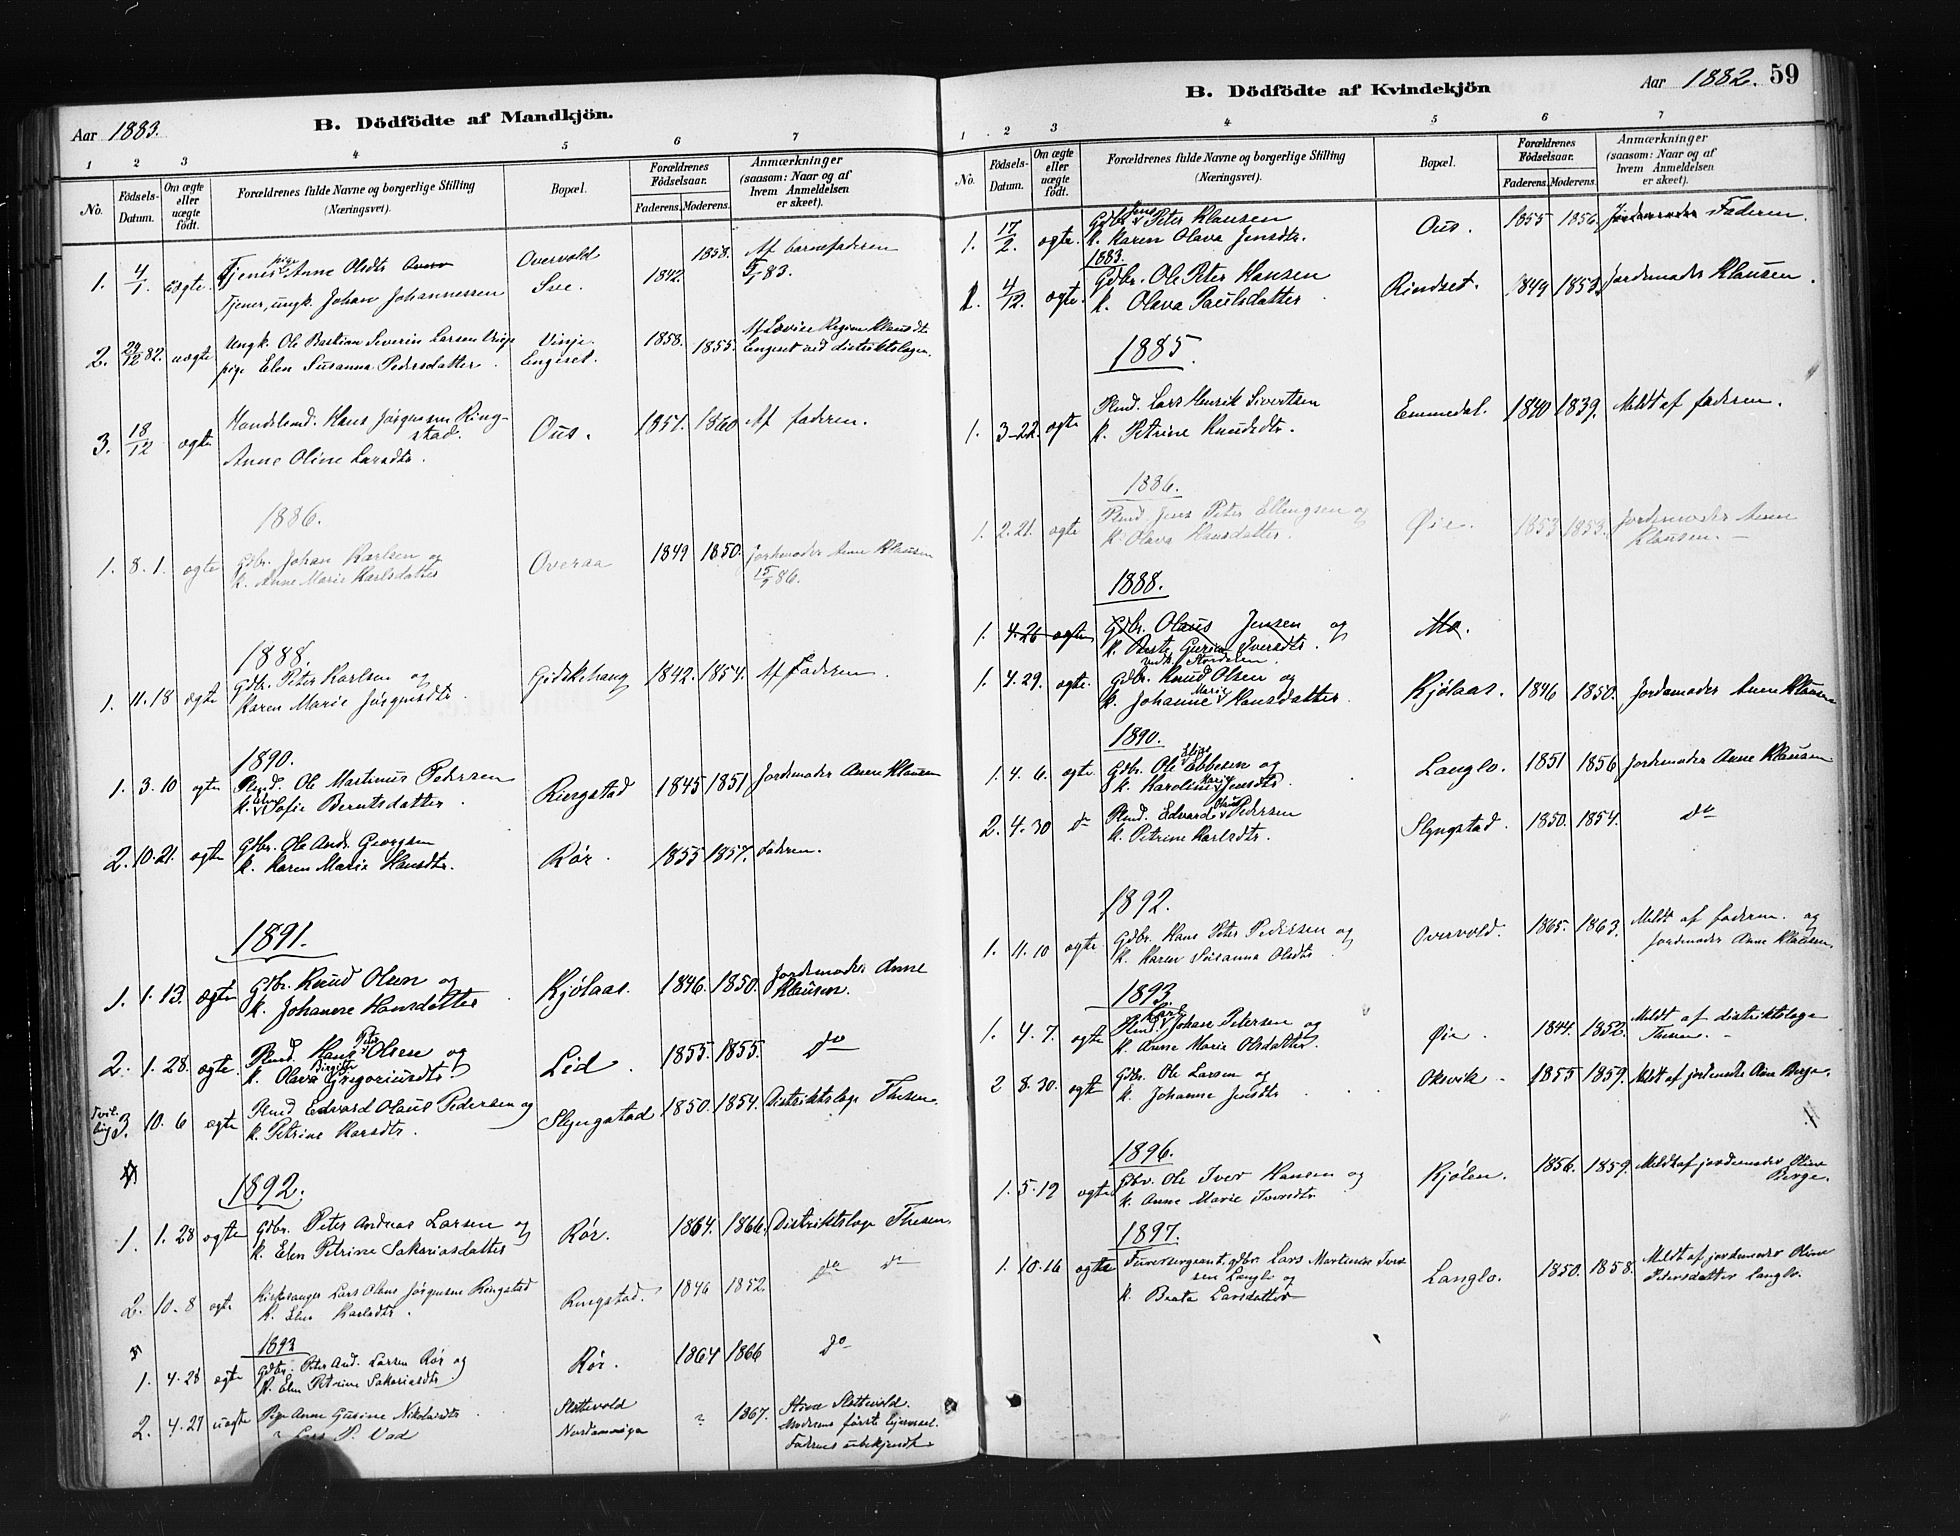 Aar 1883.
B. Dödfödte af Mandkjön.
1 2 3 4 5 6 7
No.
Födsels-Datum.
Om ægte eller uægte födt.
Forældrenes fulde Navne og borgerlige Stilling (Næringsvei).
Bopæl.
Forældrenes Födselsaar.
Faderens. Moderens.
Anmærkninger (saasom: Naar og af hvem Anmeldelsen er skeet).
1. 4/1. Tjenestpige Anne Olsdtr Overvold 1858. Af barnefaderen
Tjener, ungk. Johan Johannessen 1842. 83.
2. 29/12 82. uægte Ungk. Ole Bastian Severin Larsen Vinje Vinje. 1858.
pige Elen Susanna Pedersdatter. Engeset. 1855. Engeset ved distriktslægen.
3. 18/12 ægte Hans Jørgensen Ringstad. Ous. 1851. 1860 Af faderen.
Anne Oline Larsdtr.
1886.
1. 8. 1. ægte Gdbr. Johan Karlsen og Overaa 1849 1850. Jordemoder Anne Klausen
k. Anne Marie Karlsdatter 86.
1888.
1. 11. 18 ægte Gdbr. Peter Karlsen og Gidskehaug 1842. 1854. Af Faderen.
Karen Marie Jörgensdtr.
1890.
1. 3. 10 ægte Plmd. Ole Martinus Pedersen Ringstad 1845 1851 Jordemoder Anne Klausen
k. Sofie Berntsdatter.
2. 10. 21. ægte Gdbr. Ole Andr. Georgsen Rør. 1855 1857. faderen.
k. Karen Marie Hansdtr.
1891.
1. 1. 13. ægte Gdbr. Knud Olsen og Kjølaas. 1846. 1850. Jordemoder Anne
k. Johanne Hansdatter Klausen.
2. 1. 28. ægte. Plmd. Hans Peter Olsen og Lid. 1855. 1855. do
k. Olava Birgitte Gregoriusdtr.
Tvilling 3. 10. 6 ægte Plmd Edvard Olaus Pedersen og Slyngstad 1850. 1854. Distriktslæge Thesen.
k. Petrine Karlsdtr.
1892.
1. 1. 28 ægte Gdbr. Peter Andreas Larsen og Rør. 1864. 1866. Distriktslæge Thesen.
k. Elen Petrine Sakariasdatter
2. 10. 8 ægte Kirkesanger Lars Olaus Jørgensen Ringstad Ringstad. 1846 1852. do do
k. Elen Karlsdtr.
1893
1. 4. 28 ægte Gdbr. Peter And. Larsen Rør og Rør. 1864 1866 do
k. Elen Petrine Sakariasdtr
2. 4. 27 uægte Pige Anne Gurine Nikolaisdtr Slettevold ? 1867. Slettevold.
Lars P. Vad Moderens første Leiermaal.
Faderens ubekjendt.
B. Dödfödte af Kvindekjön
Aar 1882. 59
1 2 3 4 5 6 7
No.
Födsels-Datum.
Om ægte eller uægte födt.
Forældrenes fulde Navne og borgerlige Stilling (Næringsvei).
Bopæl.
Forældrenes Födselsaar.
Faderens. Moderens.
Anmærkninger (saasom: Naar og af hvem Anmeldelsen er skeet).
1. 17/2. ægte. Gdbr. Jens Peter Klausen Ous. 1855 1856. Jordemoder Faderen.
k. Karen Olava Jensdtr.
1883.
1. 4/12. ægte. Gdbr. Ole Peter Hansen Rindset. 1849 1853. Jordemoder Klausen.
k. Olava Paulsdatter
1885.
1. 3-22. ægte Plmd. Lars Henrik Sivertsen Emmedal. 1840 1839. Meldt af faderen.
k. Petrine Knudsdtr.
1886.
1. 2. 21. ægte Plmd Jens Peter Ellingsen og Øie. 1853 1853. Jordemoder Anne
k. Olava Hansdatter. Klausen.
1888.
1. 4-26 ægte Gdbr. Olaus Jensen og Mo.
k. Gurine Iversdtr.
1. 4. 29. ægte. Gdbr. Knud Olsen og Kjølaas. 1846 1850. Jordemoder Anne Klausen
k. Johanne Marie Hansdatter.
1890.
1. 4. 6. ægte Gdbr. Ole Elias Ebbesen og Langlo. 1851 1856 Jordemoder Anne Klausen
k. Karoline Marie Jensdtr.
2. 4. 30 do Plmd. Edvard Olaus Pedersen Slyngstad. 1850. 1854. do
k. Petrine Karlsdtr.
1892.
1. 11. 10 ægte Gdbr. Hans Peter Pedersen og Overvold. 1865. 1863. Meldt af faderen. og
k. Karen Susanna Olsdtr Jordemoder Anne Klausen.
1893.
1. 4. 7. ægte Plmd. Karl Johan Petersen og Øie. 1844. 1852. Meldt af distriktslæge
k. Anne Marie Olsdatter. Thesen.
2 8. 30. ægte Gdbr. Ole Larsen og Oksvik. 1855 1859. Meldt af jordemoder Berge.
k. Johanne Jensdtr
1896.
1. 5. 12 ægte Gdbr. Ole Iver Hansen og Kjølen. 1856. 1859. Meldt af jordemoder Oline
k. Anne Marie Iversdtr. Berge.
1897.
1. 10. 16 ægte Furersergeant, gdbr. Lars Martinus Iversen Langlo og Langlo. 1850. 1858. Meldt af jordemoder Oline
k. Beata Larsdatter Petersdatter Langlo.